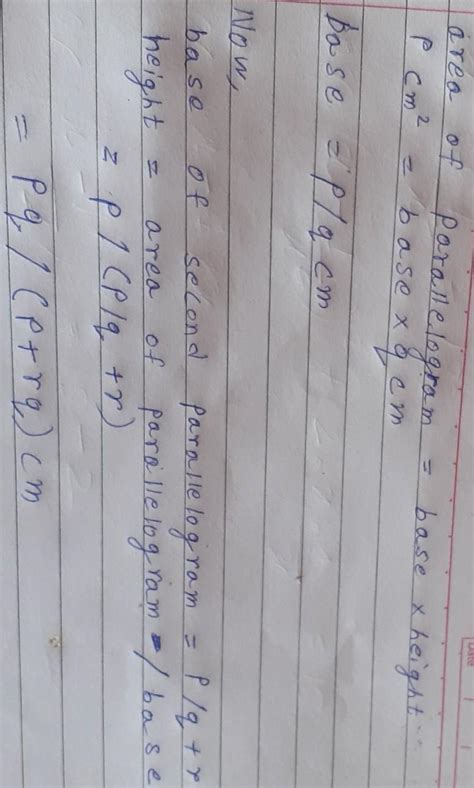 Date
area of parallelogram = base x height
P cm² = base x q cm
base = p/q cm
Now,
base of second parallelogram = P/q + r
height = area of parallelogram /base
= P/(P/q + r)
= Pq/(P+rq) cm